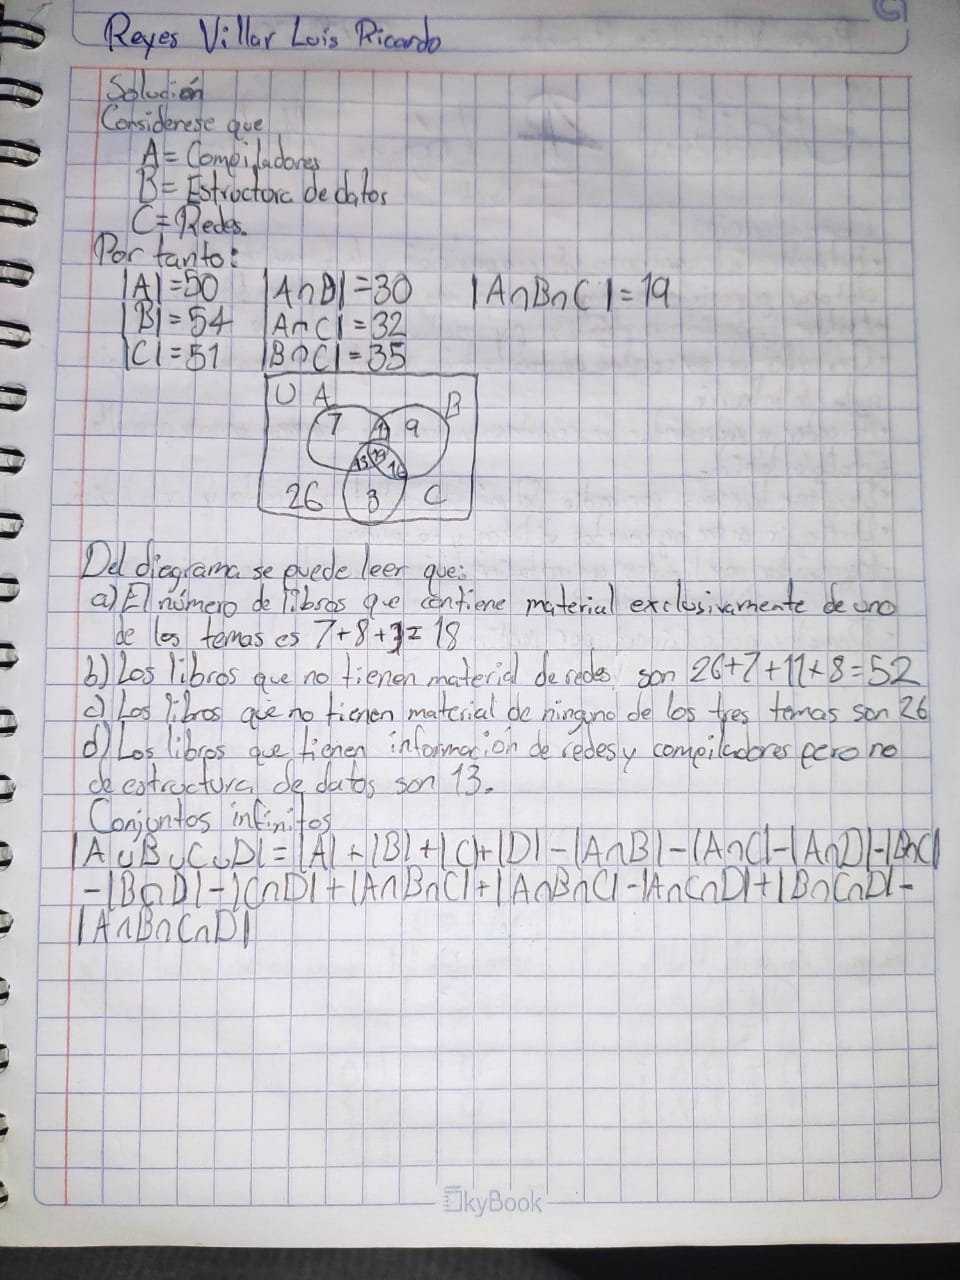 Reyes Villar Luis Ricardo
Solución
Considerese que
A = Compiladores
B = Estructura de datos
C = Redes.
Por tanto:
|A| = 50 |A∩B| = 30 |A∩B∩C| = 19
|B| = 54 |A∩C| = 32
|C| = 51 |B∩C| = 35
U A B
7 11 9
13 19 16
26 3 C
Del diagrama se puede leer que:
a) El número de libros que contiene material exclusivamente de uno
de los temas es 7+8+3= 18
b) Los libros que no tienen material de redes son 26+7+11+8=52
c) Los libros que no tienen material de ninguno de los tres temas son 26
d) Los libros que tienen información de redes y compiladores pero no
de estructura de datos son 13.
Conjuntos infinitos
|A∪B∪C∪D| = |A| + |B| + |C| + |D| - |A∩B| - |A∩C| - |A∩D| - |B∩C|
- |B∩D| - |C∩D| + |A∩B∩C| + |A∩B∩C| - |A∩C∩D| + |B∩C∩D| -
|A∩B∩C∩D|
SkyBook